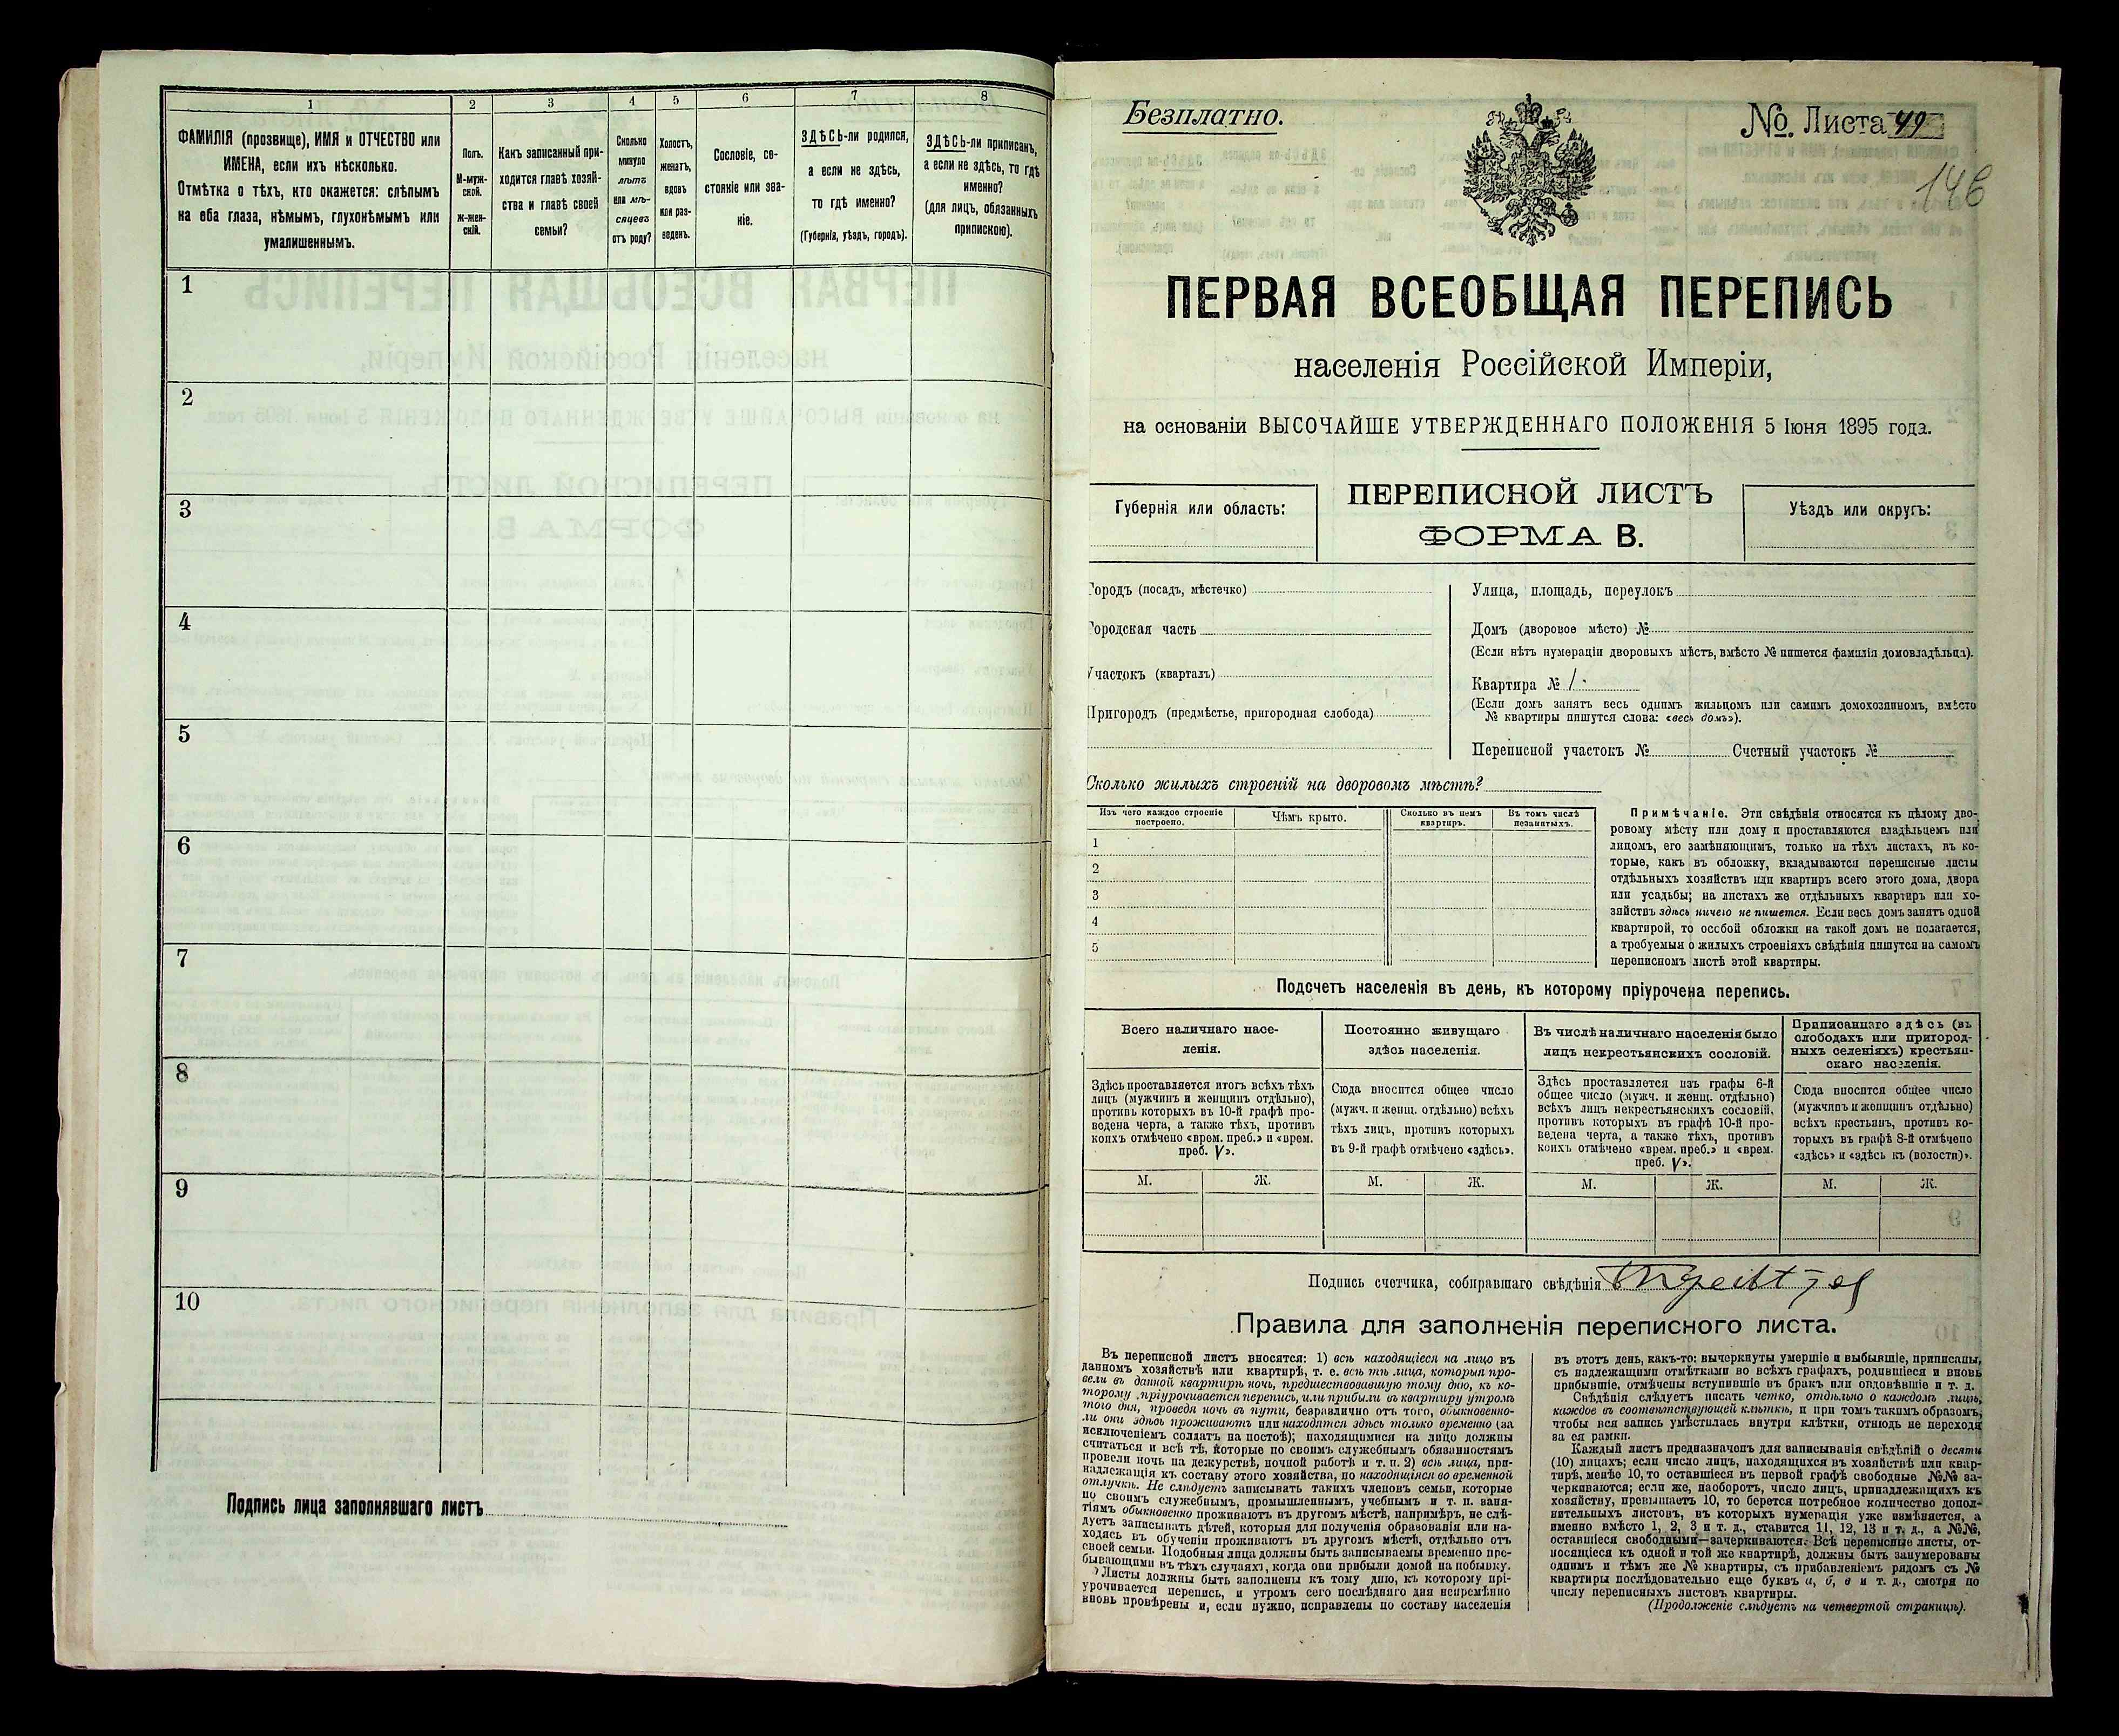 1
2
3
4
5
6
7
8
ФАМИЛІЯ (прозвище), ИМЯ и ОТЧЕСТВО или
ИМЕНА, если ихъ нѣсколько.
Отмѣтка о тѣхъ, кто окажется: слѣпымъ
на оба глаза, нѣмымъ, глухонѣмымъ или
умалишеннымъ.
Полъ.
М-муж-
ской.
Ж-жен-
скій.
Какъ записанный при-
ходится главѣ хозяй-
ства и главѣ своей
семьи?
Сколько
минуло
лѣтъ
или мѣ-
сяцевъ
отъ роду?
Холостъ,
женатъ,
вдовъ
или раз-
веденъ.
Сословіе, со-
стояніе или зва-
ніе.
ЗДѢСЬ-ли родился,
а если не здѣсь,
то гдѣ именно?
(Губернія, уѣздъ, городъ).
ЗДѢСЬ-ли приписанъ,
а если не здѣсь, то гдѣ
именно?
(для лицъ, обязанныхъ
припискою).
1
2
3
4
5
6
7
8
9
10
Подпись лица заполнявшаго листъ
Безплатно.
№. Листа 49
146
ПЕРВАЯ ВСЕОБЩАЯ ПЕРЕПИСЬ
населенія Россійской Имперіи,
на основаніи ВЫСОЧАЙШЕ УТВЕРЖДЕННАГО ПОЛОЖЕНІЯ 5 Іюня 1895 года.
Губернія или область:
ПЕРЕПИСНОЙ ЛИСТЪ
ФОРМА В.
Уѣздъ или округъ:
Городъ (посадъ, мѣстечко)
Городская часть
Участокъ (кварталъ)
Пригородъ (предмѣстье, пригородная слобода)
Улица, площадь, переулокъ
Домъ (дворовое мѣсто) №
(Если нѣтъ нумераціи дворовыхъ мѣстъ, вмѣсто № пишется фамилія домовладѣльца).
Квартира № 1
(Если домъ занятъ весь однимъ жильцомъ или самимъ домохозяиномъ, вмѣсто
№ квартиры пишутся слова: «весь домъ»).
Переписной участокъ № Счетный участокъ №
Сколько жилыхъ строеній на дворовомъ мѣстѣ?
Изъ чего каждое строеніе
построено.
Чѣмъ крыто.
Сколько въ немъ
квартиръ.
Въ томъ числѣ
незанятыхъ.
1
2
3
4
5
Примѣчаніе. Эти свѣдѣнія относятся къ цѣлому дво-
ровому мѣсту или дому и проставляются владѣльцемъ или
лицомъ, его замѣняющимъ, только на тѣхъ листахъ, въ ко-
торые, какъ въ обложку, вкладываются переписные листы
отдѣльныхъ хозяйствъ или квартиръ всего этого дома, двора
или усадьбы; на листахъ же отдѣльныхъ квартиръ или хо-
зяйствъ здѣсь ничего не пишется. Если весь домъ занятъ одной
квартирой, то особой обложки на такой домъ не полагается,
а требуемыя о жилыхъ строеніяхъ свѣдѣнія пишутся на самомъ
переписномъ листѣ этой квартиры.
Подсчетъ населенія въ день, къ которому пріурочена перепись.
Всего наличнаго насе-
ленія.
Здѣсь проставляется итогъ всѣхъ тѣхъ
лицъ (мужчинъ и женщинъ отдѣльно),
противъ которыхъ въ 10-й графѣ про-
ведена черта, а также тѣхъ, противъ
коихъ отмѣчено «врем. преб.» и «врем.
преб. V».
Постоянно живущаго
здѣсь населенія.
Сюда вносится общее число
(мужч. и женщ. отдѣльно) всѣхъ
тѣхъ лицъ, противъ которыхъ
въ 9-й графѣ отмѣчено «здѣсь».
Въ числѣ наличнаго населенія было
лицъ некрестьянскихъ сословій.
Здѣсь проставляется изъ графы 6-й
общее число (мужч. и женщ. отдѣльно)
всѣхъ лицъ некрестьянскихъ сословій,
противъ которыхъ въ графѣ 10-й про-
ведена черта, а также тѣхъ, противъ
коихъ отмѣчено «врем. преб.» и «врем.
преб. V».
Приписаннаго здѣсь (въ
слободахъ или пригород-
ныхъ селеніяхъ) крестьян-
скаго населенія.
Сюда вносится общее число
(мужчинъ и женщинъ отдѣльно)
всѣхъ крестьянъ, противъ ко-
торыхъ въ графѣ 8-й отмѣчено
«здѣсь» и «здѣсь къ (волости)».
М. Ж. М. Ж. М. Ж. М. Ж.
Подпись счетчика, собиравшаго свѣдѣнія
Правила для заполненія переписного листа.
Въ переписной листъ вносятся: 1) всѣ находящіеся на лицо въ
данномъ хозяйствѣ или квартирѣ, т. е. всѣ тѣ лица, которыя про-
вели въ данной квартирѣ ночь, предшествовавшую тому дню, къ ко-
торому пріурочивается перепись, или прибыли въ квартиру утромъ
того дня, проведя ночь въ пути, безразлично отъ того, обыкновенно-
ли они здѣсь проживаютъ или находятся здѣсь только временно (за
исключеніемъ солдатъ на постоѣ); находящимися на лицо должны
считаться и всѣ тѣ, которые по своимъ служебнымъ обязанностямъ
провели ночь на дежурствѣ, ночной работѣ и т. п. 2) всѣ лица, при-
надлежащія къ составу этого хозяйства, но находящіяся во временной
отлучкѣ. Не слѣдуетъ записывать такихъ членовъ семьи, которые
по своимъ служебнымъ, промышленнымъ, учебнымъ и т. п. заня-
тіямъ обыкновенно проживаютъ въ другомъ мѣстѣ, напримѣръ, не слѣ-
дуетъ записывать дѣтей, которыя для полученія образованія или на-
ходясь въ обученіи проживаютъ въ другомъ мѣстѣ, отдѣльно отъ
своей семьи. Подобныя лица должны быть записываемы временно пре-
бывающими въ тѣхъ случаяхъ, когда они прибыли домой на побывку.
Листы должны быть заполнены къ тому дню, къ которому прі-
урочивается перепись, и утромъ сего послѣдняго дня непремѣнно
вновь провѣрены и, если нужно, исправлены по составу населенія
въ этотъ день, какъ-то: вычеркнуты умершіе и выбывшіе, приписаны,
съ надлежащими отмѣтками во всѣхъ графахъ, родившіеся и вновь
прибывшіе, отмѣчены вступившіе въ бракъ или овдовѣвшіе и т. д.
Свѣдѣнія слѣдуетъ писать четко, отдѣльно о каждомъ лицѣ,
каждое въ соотвѣтствующей клѣткѣ, и при томъ такимъ образомъ,
чтобы вся запись умѣстилась внутри клѣтки, отнюдь не переходя
за ея рамки.
Каждый листъ предназначенъ для записыванія свѣдѣній о десяти
(10) лицахъ; если число лицъ, находящихся въ хозяйствѣ или квар-
тирѣ, менѣе 10, то оставшіеся въ первой графѣ свободные №№ за-
черкиваются; если же, наоборотъ, число лицъ, принадлежащихъ къ
хозяйству, превышаетъ 10, то берется потребное количество допол-
нительныхъ листовъ, въ которыхъ нумерація уже измѣняется, а
именно вмѣсто 1, 2, 3 и т. д., ставится 11, 12, 13 и т. д., а №№,
оставшіеся свободными—зачеркиваются. Всѣ переписные листы, от-
носящіеся къ одной и той же квартирѣ, должны быть занумерованы
однимъ и тѣмъ же № квартиры, съ прибавленіемъ рядомъ съ №
квартиры послѣдовательно еще буквъ а, б, в и т. д., смотря по
числу переписныхъ листовъ квартиры.
(Продолженіе слѣдуетъ на четвертой страницѣ).